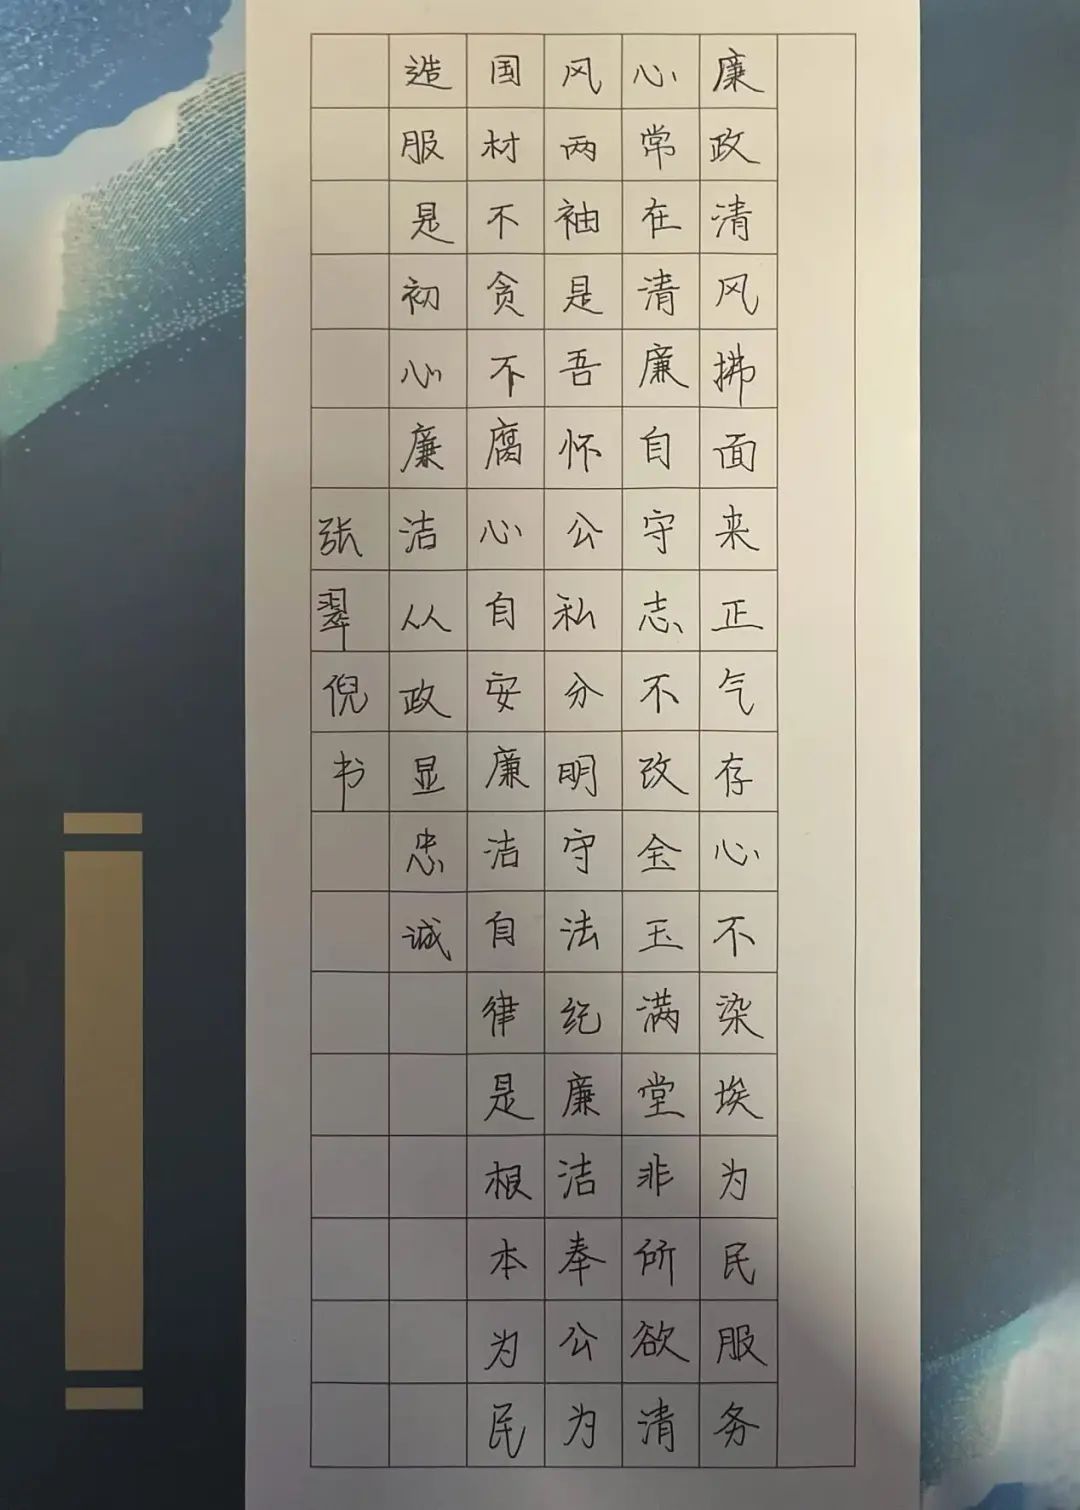 廉政清风拂面来正气存心不染埃为民服务
心常在清廉自守志不改金玉满堂非所欲清
风两袖是吾怀公私分明守法纪廉洁奉公为
国材不贪不腐心自安廉洁自律是根本为民
造服是初心廉洁从政显忠诚
张翠倪书